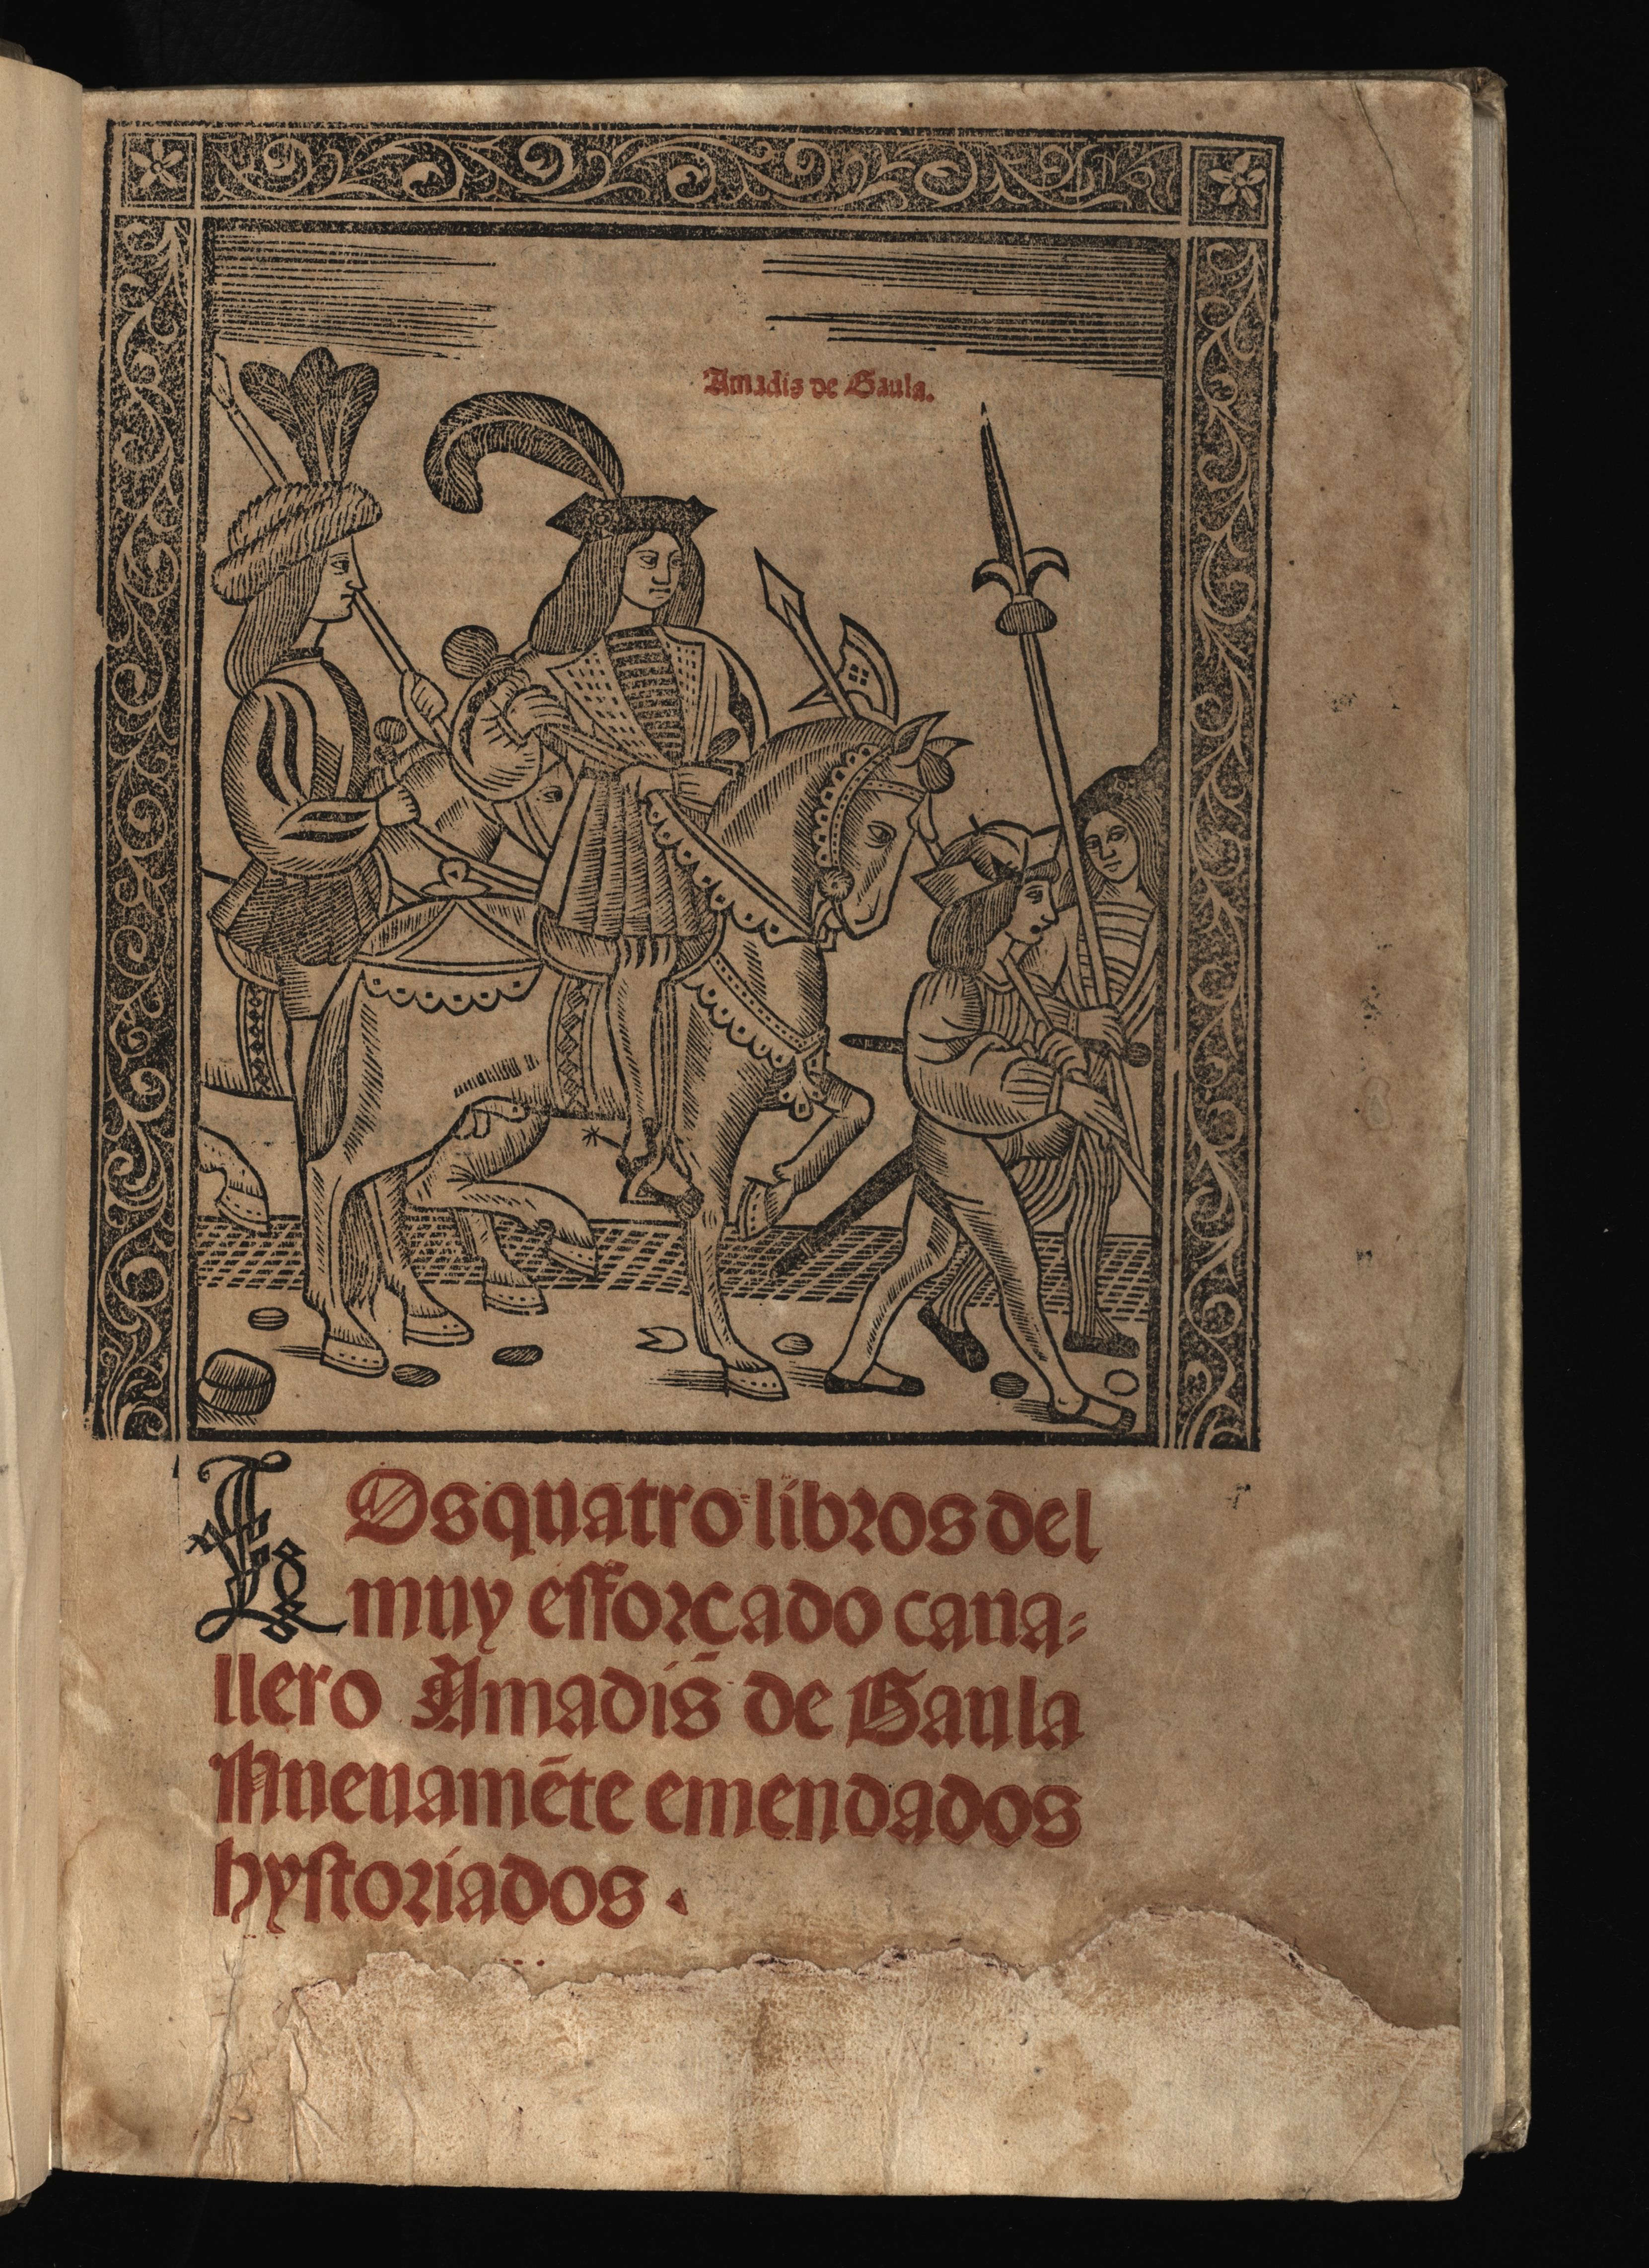 Amadis de Gaula.
LOs quatro libros del
muy efforcado caua-
llero Amadis de Gaula
Nueuamēte emendados
hyſtoriados.